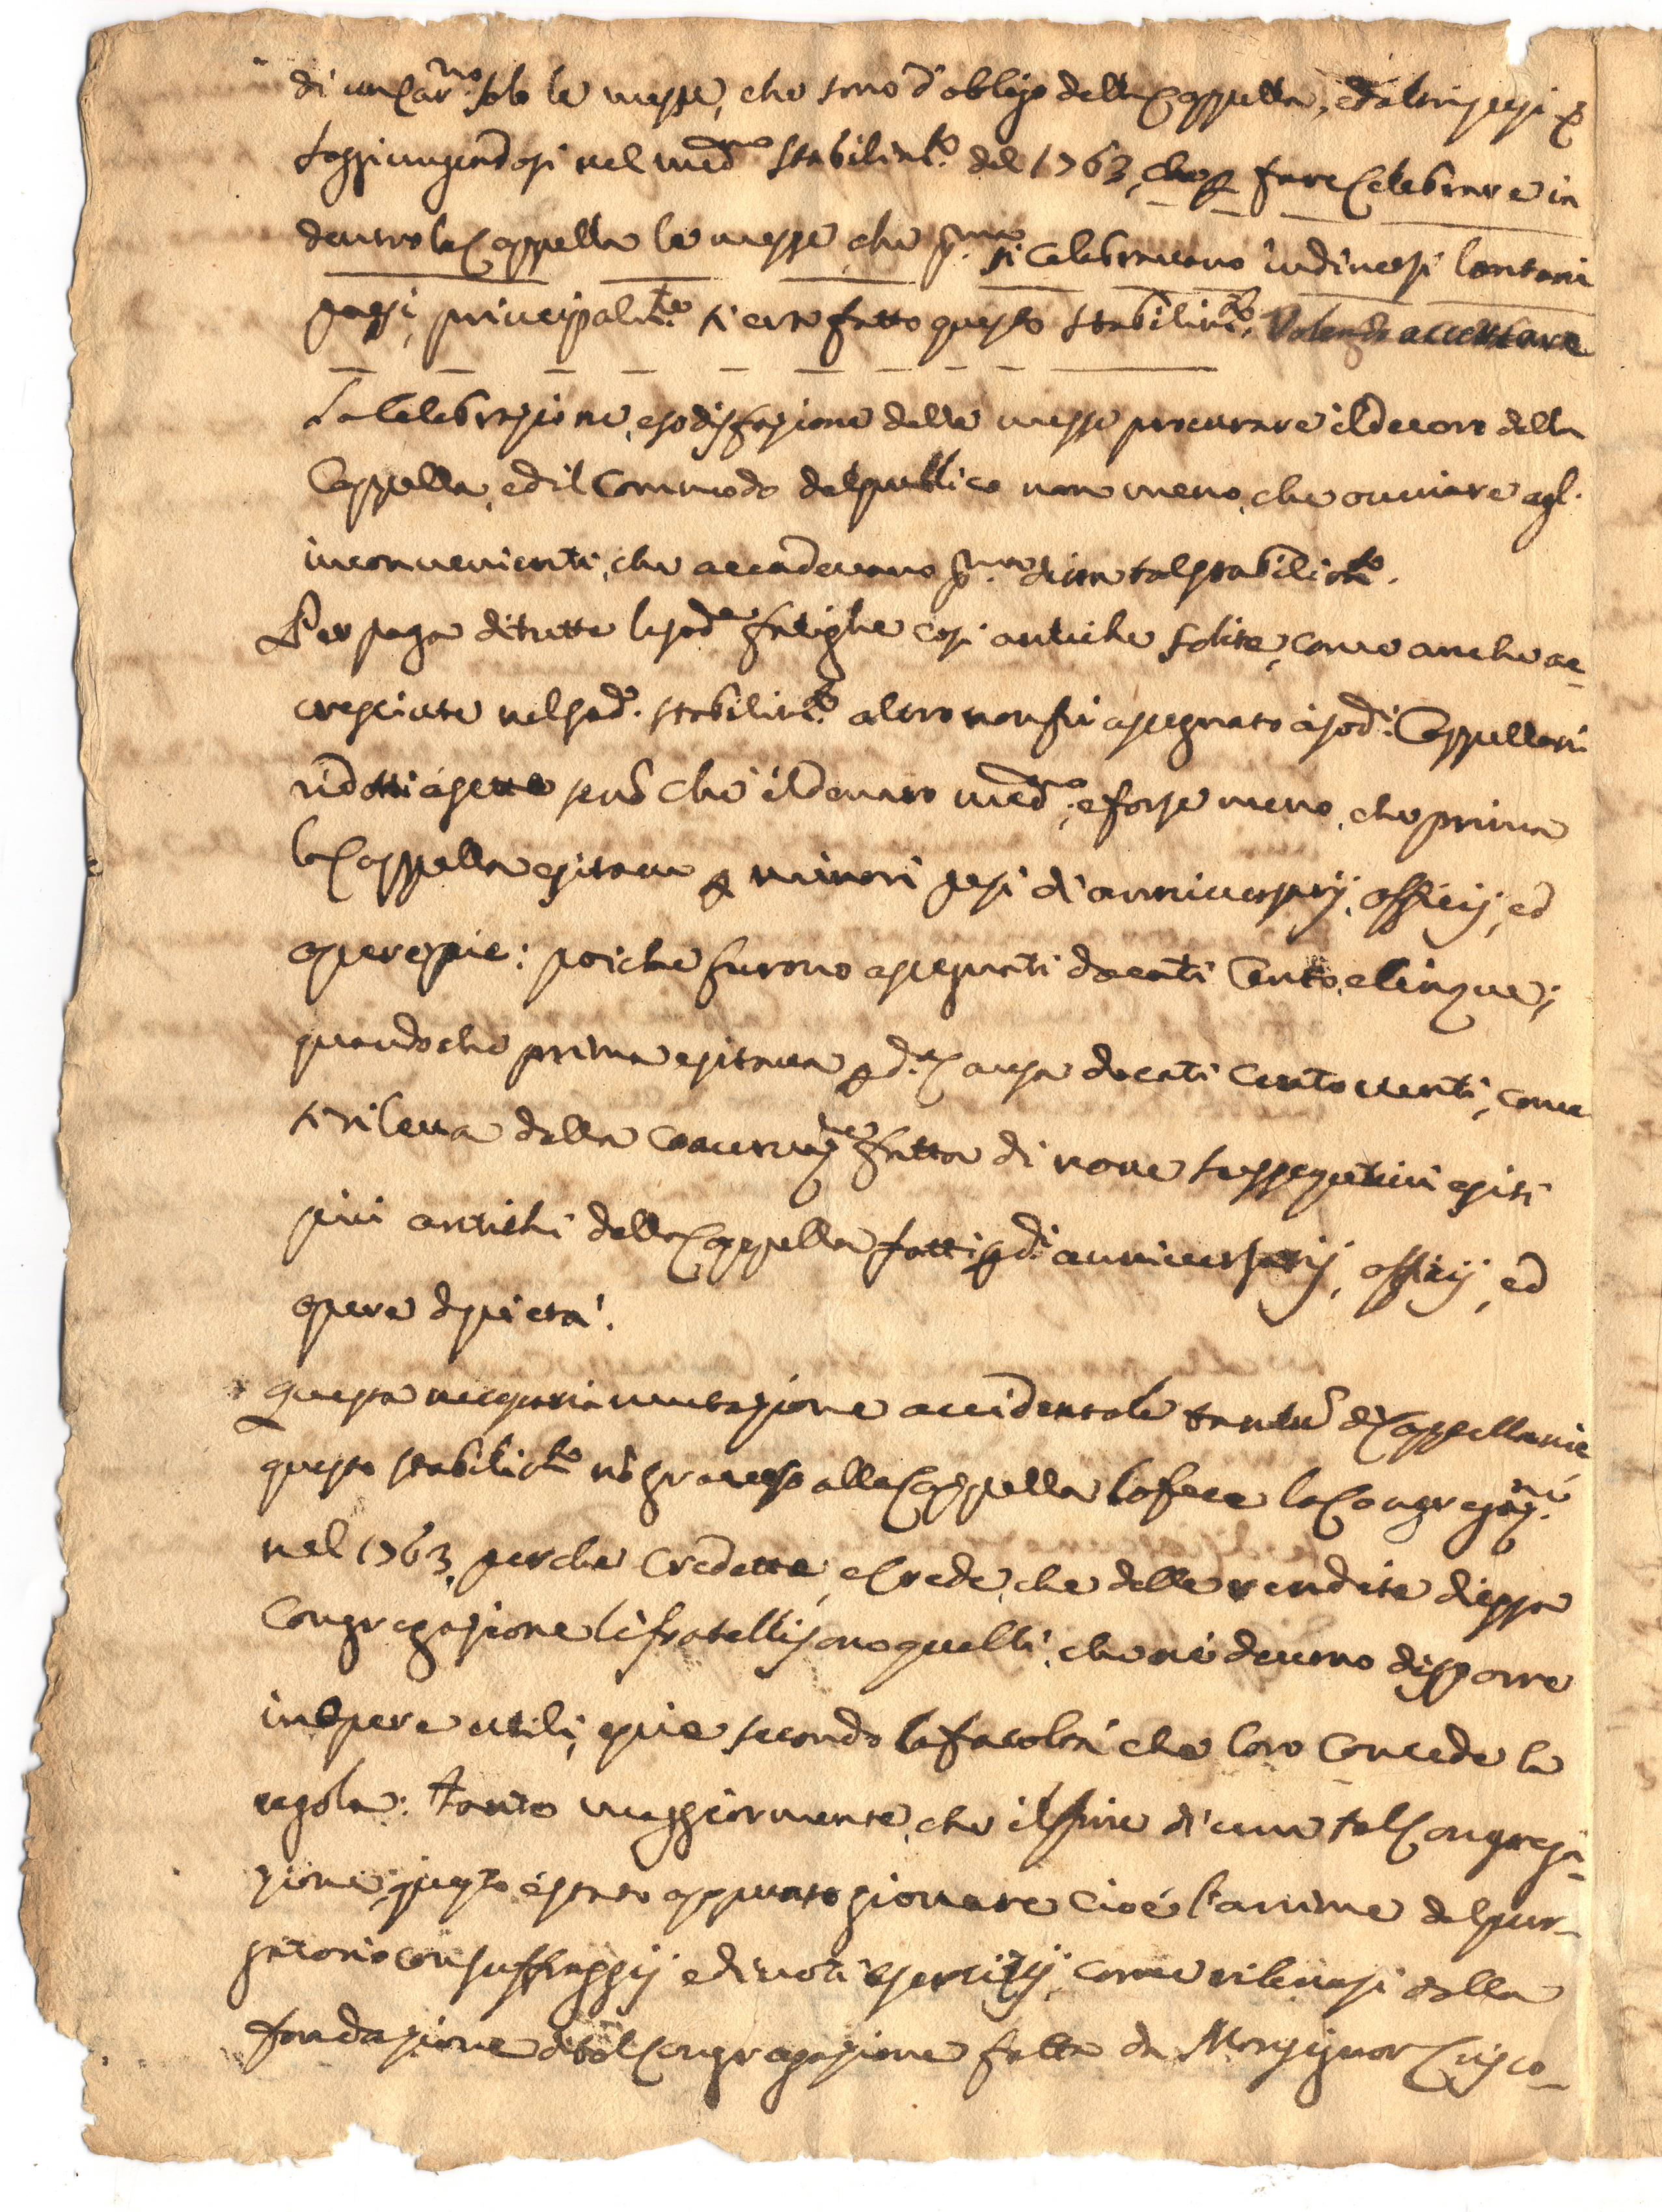 di un Car.no solo le messe, che sono d'obligo della Cappella, ed altri pesi &
soggiungendosi nel med.mo stabilim.to del 1763, che p fare celebrare in
dentro la Cappella le messe, che p.ma si celebravano in diversi lontani
paesi, principalm.te si era fatto questo stabilim.to. Volendo accertare
la Celebrazione, e sodisfazione delle messe procurare il decoro della
Cappella, ed il Commodo del publico non meno, che ovviare agl'
inconvenienti, che accadevano p.ma di un tal stabilim.to.
Per paga di tutte le sod.e fatighe così antiche solite, come anche ac-
cresciute nel sod.o stabilim.to altro non fù assegnato à sod.i Cappellani
ridotti à sette senõ che il denaro med.mo, e forse meno, che prima
la Cappella esitava p minori pesi di anniversarij, officij, ed
opere pie: poiche furono assegnati docati Cento, e Cinque;
quandoche prima esitava p d.a Causa docati Cento venti, come
si rileva dalla Coacervaz.ne fatta di nove susseguitivi esiti
più antichi della Cappella fatti p d.i anniversarij, officij, ed
opere di pietà.
Questa necessaria mutazione accidentale tantũ di Cappellanie
questo stabilim.to nõ gravoso alla Cappella lo fece la Congregaz.ne
nel 1763, perche Credette, e Crede, che delle rendite di essa
Congregazione li fratelli sono quelli, che ne devono disporre
in opere utili, e pie secondo la facoltà che loro Concede la
regola: tanto maggiormente, che il fine di una tal Congrega-
zione questo è stato appunto giovare cioè l'anime del pur-
gatorio con suffraggij e divoti esercizij, come rilevasi dalla
fondazione di tal Congregazione fatta da Monsignor